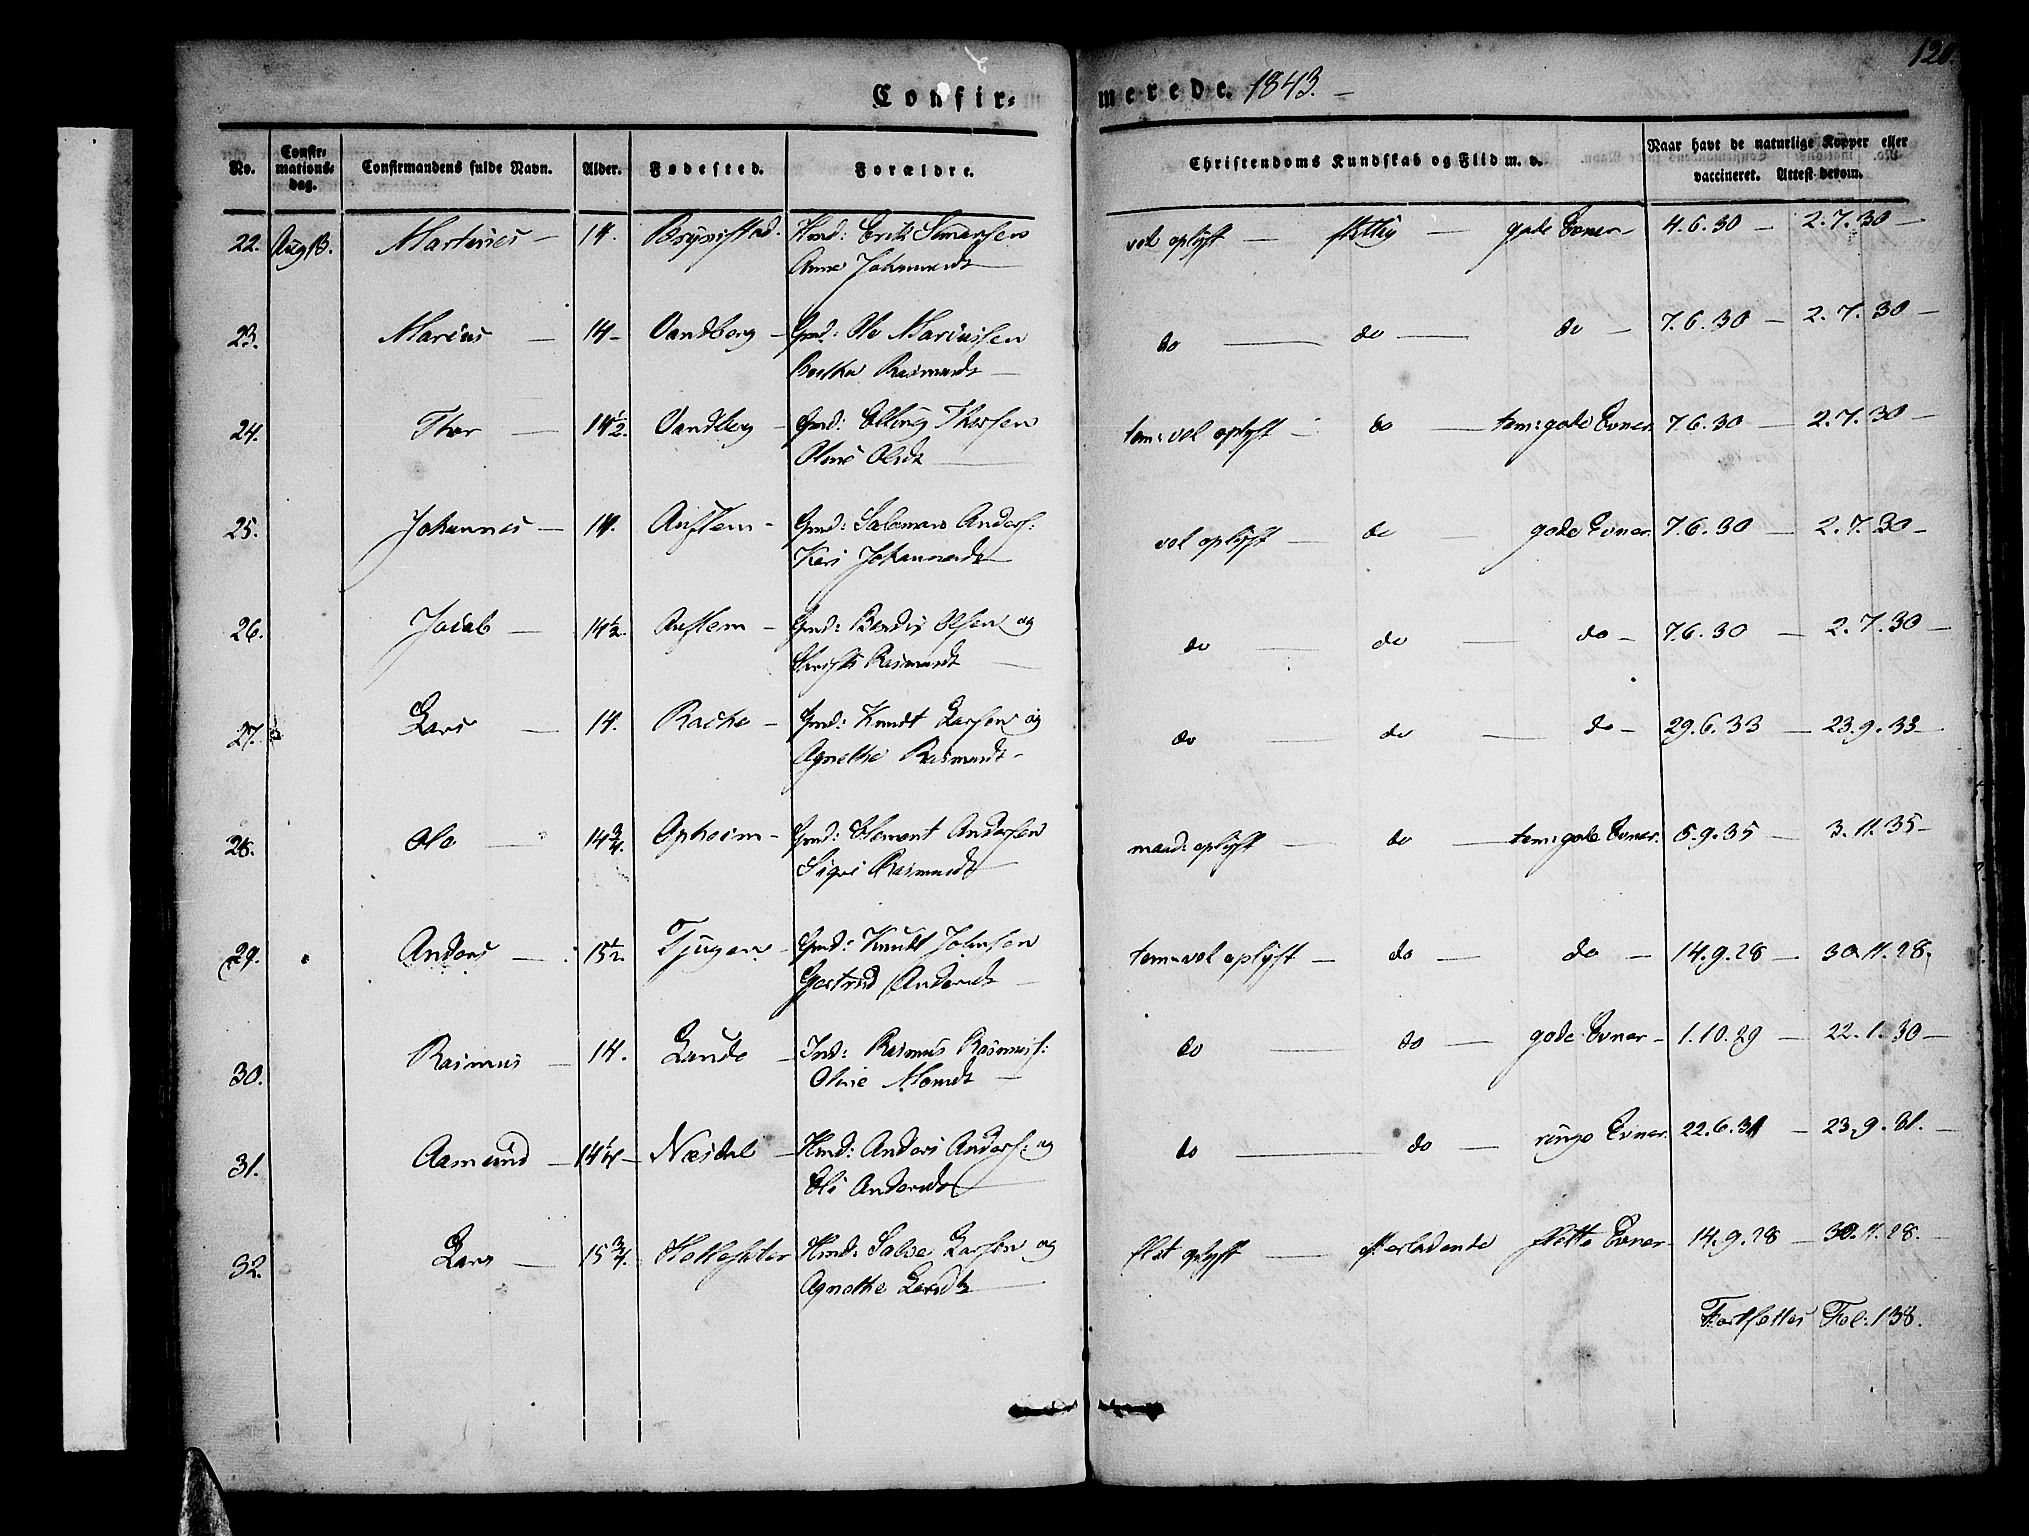 Confirmerede. 1843. 120.
No. Confirmationsdag. Confirmandens fulde Navn. Alder. Fødested. Forældre. Christendoms Kundskab og Flid m. v. Naar havt de naturlige Kopper eller vaccineret. Attest derom.
22. Martines 14. Hmd: Erik vel oplyst flittig gode Evner 4.6.30 2.7.30
23. Marius 14 Vandberg Gmd: Ole Mariussen do do do 7.6.30 2.7.30
Rasmusdt
24. Thor 14½. Vandberg Gmd: Elling Thorsen tem: vel oplyst do tem: gode Evner 7.6.30 2.7.30
Olsdt
25. Johannes 14. Aastem Gmd: Salomon Anders: vel oplyst do gode Evner 7.6.30 2.7.30
Kari Johannesdt
26. Jacob 14½. Aastem Gmd: Olsen og do do do 7.6.30 2.7.30
Rasmusdt
27. Lars 14. Gmd: Knudt Larsen og do do do 29.6.33 23.9.33
Agnethe Rasmusdt
28. Ole 14¾. Opheim Gmd: Andersen maad: oplyst do tem: gode Evner. 5.9.35 3.11.35
Siqvi Rasmusdt
29. Anders 15½. Tjugen Gmd: Knudt Johnsen tem: vel oplyst do do 14.9.28 30.11.28.
Gertrud Andersdt
30. Rasmus 14. Lunde Ind: Rasmus Rasmuss: do do gode Evner 1.10.29 22.1.30
Oline Monsdt
31. Aamund 14¼ Næsdal Hmd: Anders Anders: og do do ringe Evner. 22.6.31 23.9.31.
Eli Andersdt
32. Lars 15¾. Hmd: Larsen og slet oplyst efterladende slette Evner 14.9.28 30.11.28.
Agnethe Larsdt
Fortsættes Fol: 138.